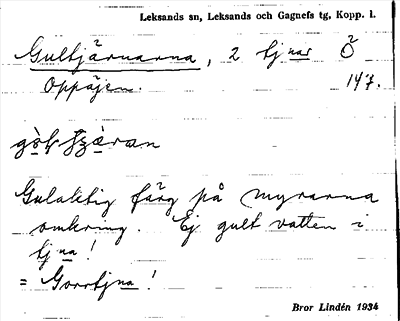 Leksands sn, Leksands och Gagnefs tg, Kopp. l.
Gultjärnarna, 2 tjnar Ö
Oppåjen. 147.
Gulaktig färg på myrarna
omkring. Ej gult vatten i
tjna!
= Gorrtjna!
Bror Lindén 1934